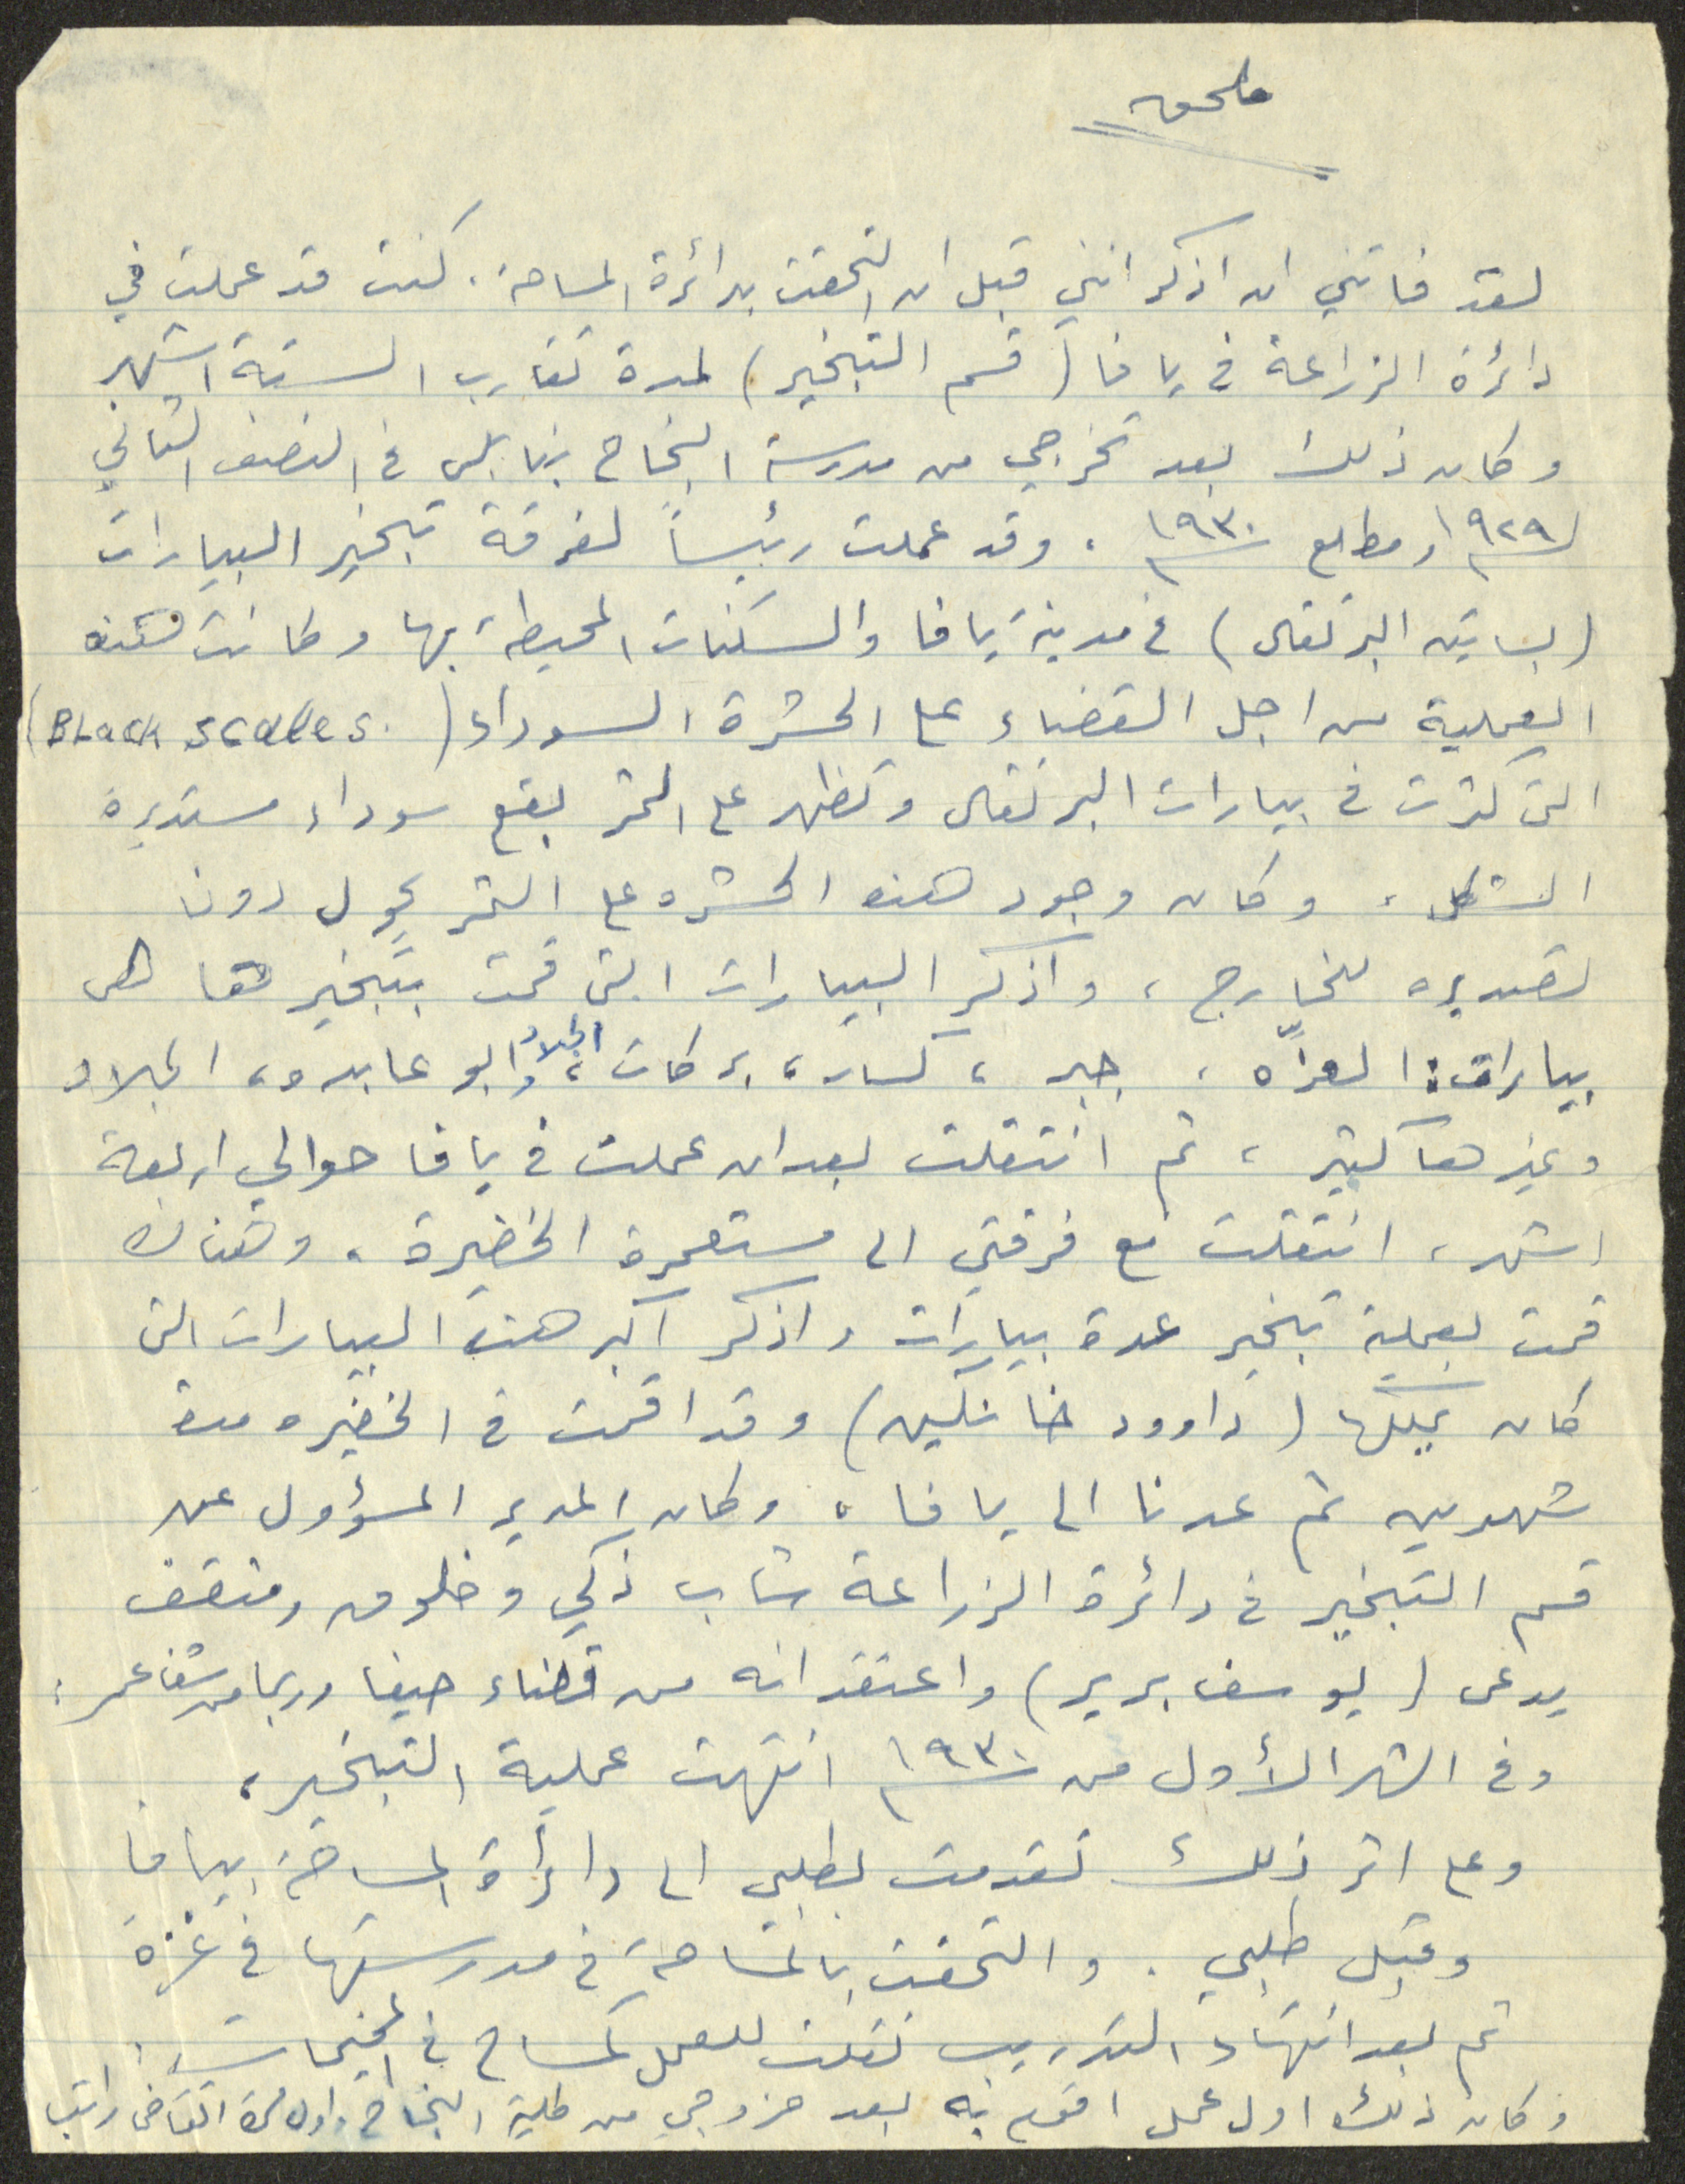 ملحق
لقد فاتني ان اذكر انني قبل ان التحقت بدائرة المساحة. كنت قد عملت في
دائرة الزراعة في يافا (قسم التبخير) لمدة تقارب الستة اشهر
وكان ذلك بعد تخرجي من مدرسة النجاح بنابلس في النصف الثاني
لسنة ١٩٢٩ ومطلع سنة ١٩٣٠، وقد عملت رئيساً لفرقة تبخير البيارات
(بساتين البرتقال) في مدينة يافا والسكنات المحيطة بها وكانت هذه
العملية من اجل القضاء على الحشرة السوداء (BLack scales.)
التي كثرت في بيارات البرتقال وتظهر على الثمر بقع سوداء مستديرة
الشكل، وكان وجود هذه الحشره على الثمر يحول دون
تصديره للخارج، واذكر البيارات التي قمت بتبخيرها هي
بيارات: العزاه، جبر، كسار، بركات، الجلاد وابو عابده، الجلاد
وغيرها كثير، ثم انتقلت بعد ان عملت في يافا حوالي اربعة
اشهر، انتقلت مع فرقتي الى مستعمرة الخضيرة، وهناك
قمت بعملية تبخير عدة بيارات واذكر اكبر هذه البيارات التي
كان يملكها (داوود خانكين) وقد اقمت في الخضيره مدة
شهرين ثم عدنا الى يافا، وكان المدير المسؤول عن
قسم التبخير في دائرة الزراعة شاب ذكي وخلوق ومثقف
يدعى (يوسف برير) واعتقد انه من قضاء حيفا وربما من شفاعمر:
وفي الشهر الأول من سنة ١٩٣٠ انتهت عملية التبخير،
وعلى اثر ذلك تقدمت بطلبي الى دائرة المساحة بيافا
وقبل طلبي. والتحقت بالمساحة في مدرستها في غزة
ثم بعد انتهاء التدريب نقلت للعمل كمساح في المخيمات.
وكان ذلك اول عمل اقوم به بعد خروجي من كلية النجاح واول مرة اتقاضى راتب